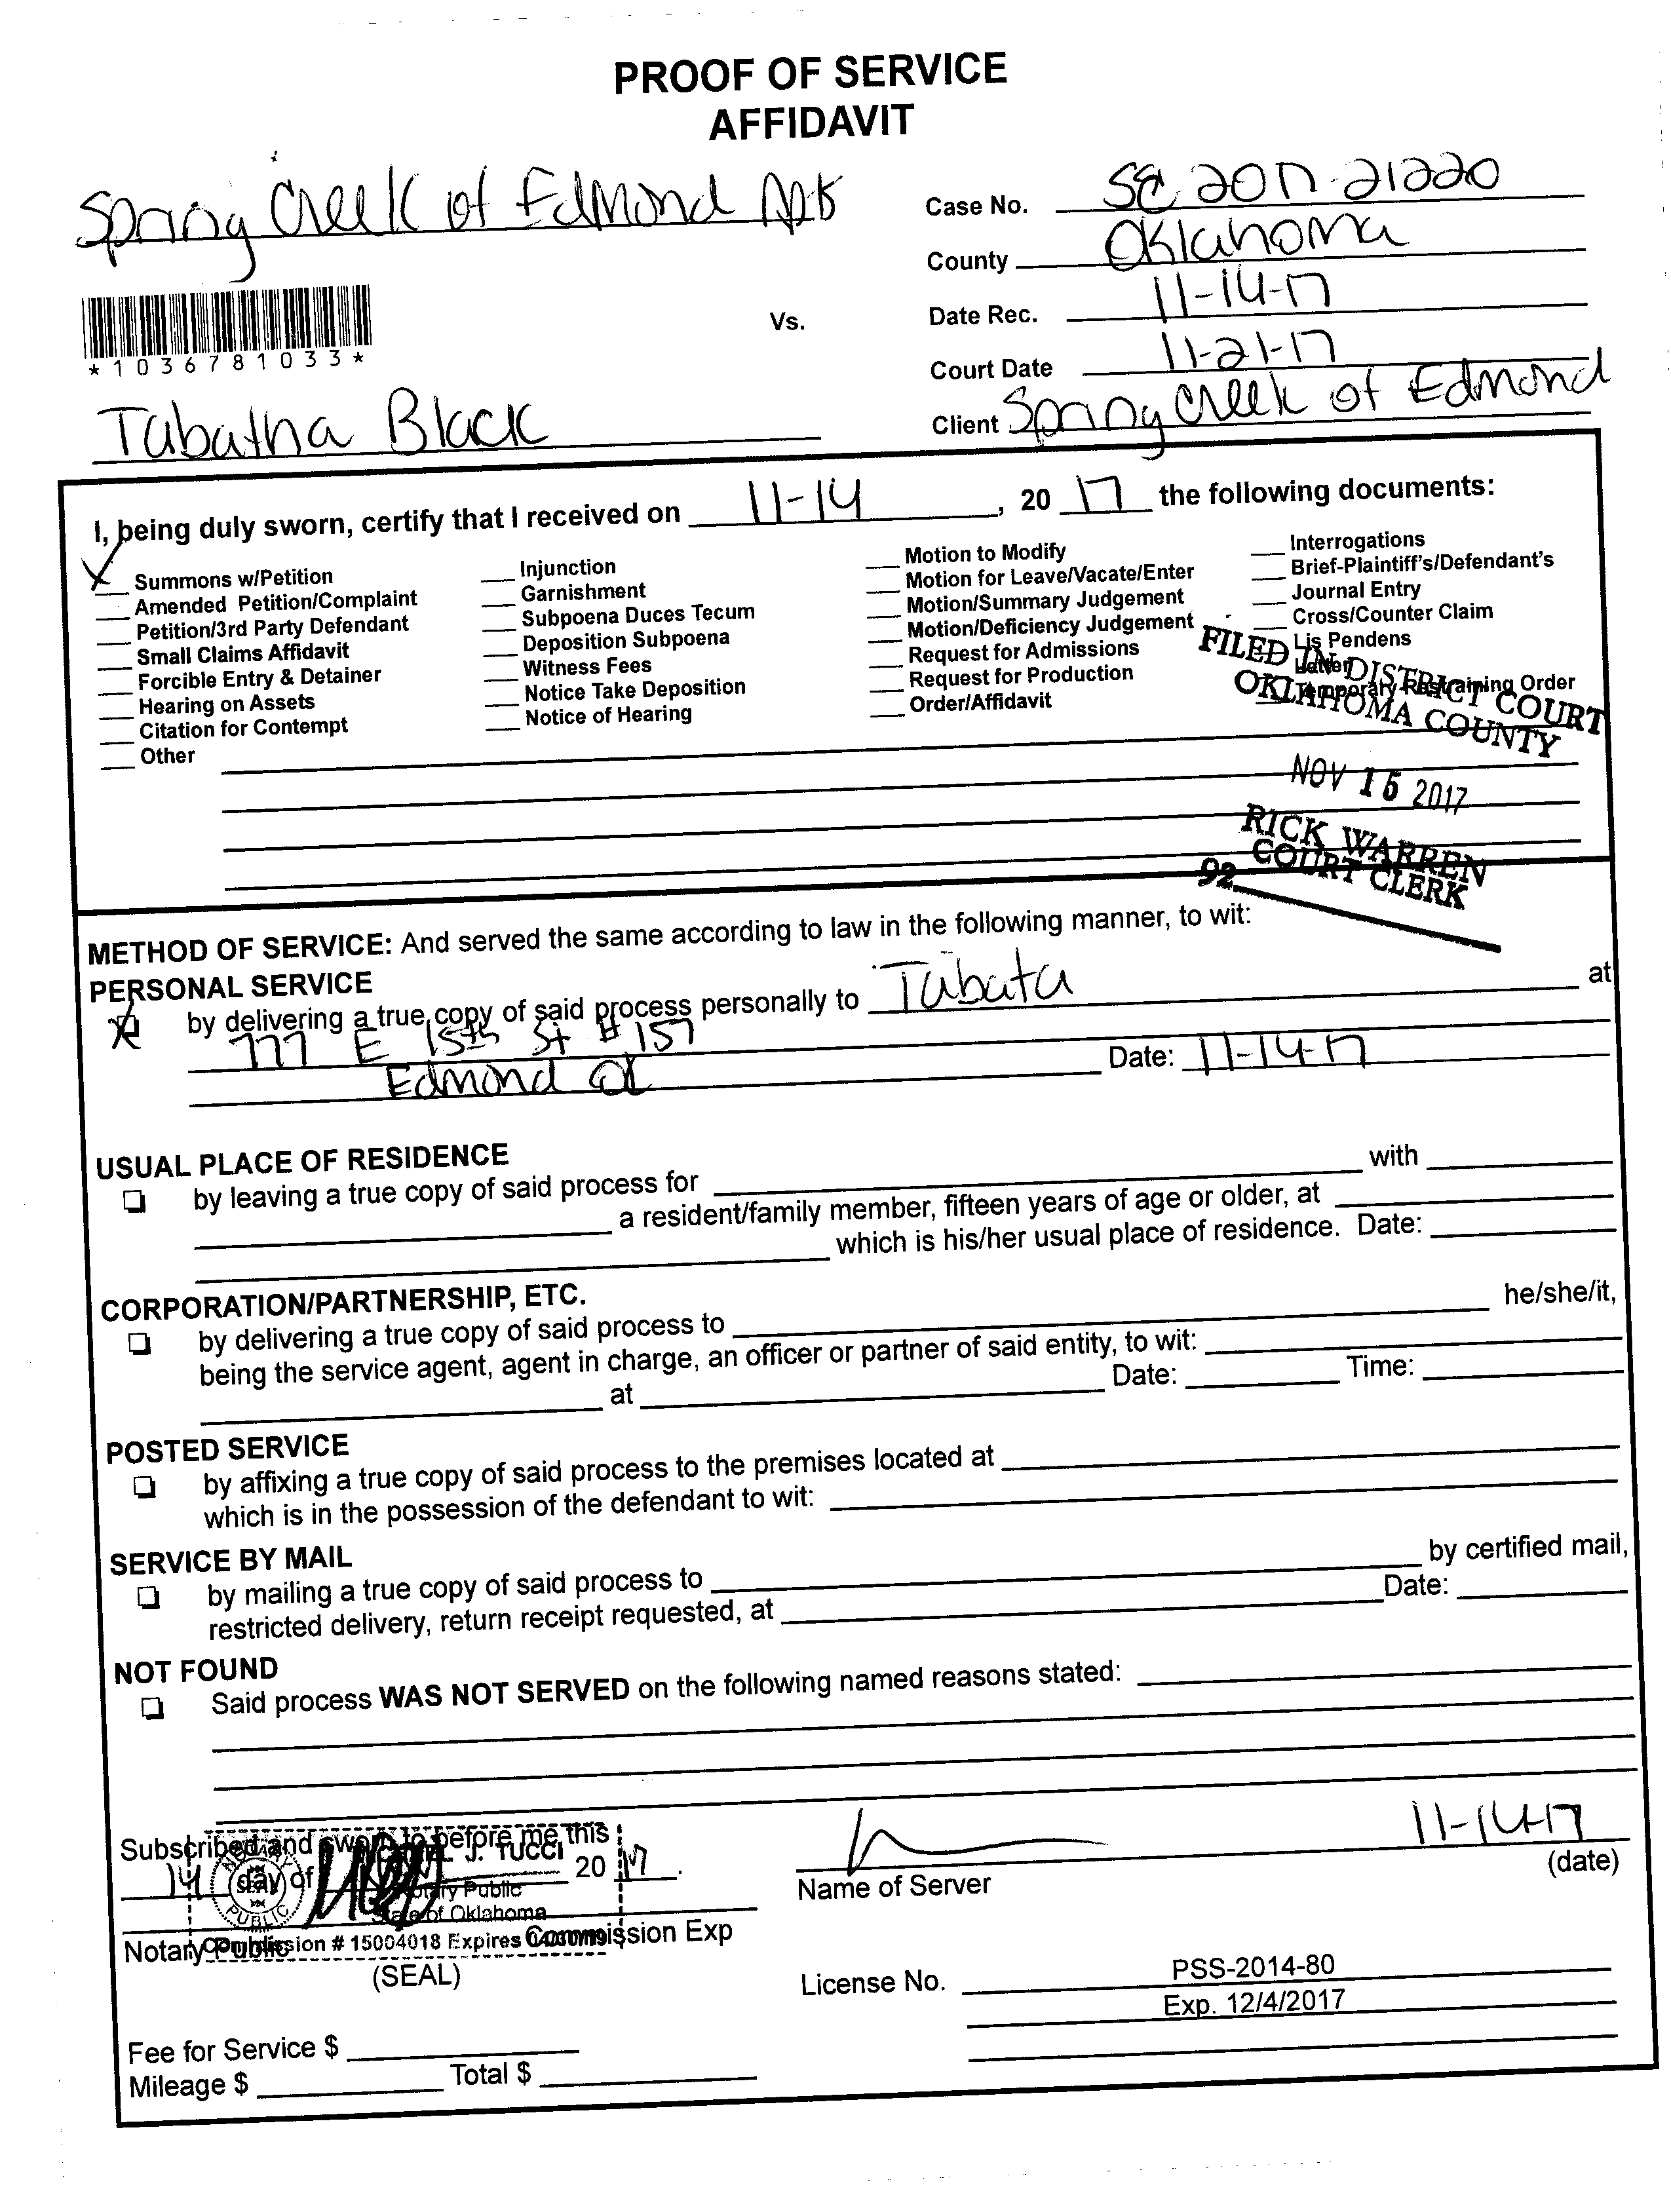 PROOF OF SERVICE
AFFIDAVIT
Spring Creek of Edmond Apts
Case No. SC 2017-21220
County Oklahoma
Date Rec. 11-14-17
Vs.
*1036781033*
Court Date 11-21-17
Client Spring Creek of Edmond
Tabatha Black
I, being duly sworn, certify that I received on 11-14, 20 17 the following documents:
Summons w/Petition
Amended Petition/Complaint
Petition/3rd Party Defendant
Small Claims Affidavit
Forcible Entry & Detainer
Hearing on Assets
Citation for Contempt
Other
Injunction
Garnishment
Subpoena Duces Tecum
Deposition Subpoena
Witness Fees
Notice Take Deposition
Notice of Hearing
Motion to Modify
Motion for Leave/Vacate/Enter
Motion/Summary Judgement
Motion/Deficiency Judgement
Request for Admissions
Request for Production
Order/Affidavit
Interrogations
Brief-Plaintiff's/Defendant's
Journal Entry
Cross/Counter Claim
Lis Pendens
Letter
Temporary Restraining Order
FILED IN DISTRICT COURT
OKLAHOMA COUNTY
NOV 15 2017
RICK WARREN
COURT CLERK
92
METHOD OF SERVICE: And served the same according to law in the following manner, to wit:
PERSONAL SERVICE
by delivering a true copy of said process personally to Tabata at
777 E 15th St #157
Edmond OK
Date: 11-14-17
USUAL PLACE OF RESIDENCE
by leaving a true copy of said process for with
a resident/family member, fifteen years of age or older, at
which is his/her usual place of residence. Date:
CORPORATION/PARTNERSHIP, ETC.
by delivering a true copy of said process to he/she/it,
being the service agent, agent in charge, an officer or partner of said entity, to wit:
at Date: Time:
POSTED SERVICE
by affixing a true copy of said process to the premises located at
which is in the possession of the defendant to wit:
SERVICE BY MAIL
by mailing a true copy of said process to by certified mail,
restricted delivery, return receipt requested, at Date:
NOT FOUND
Said process WAS NOT SERVED on the following named reasons stated:
Subscribed and sworn to before me this
14 day of 20 17.
J. TUCCI
Notary Public
State of Oklahoma
Commission # 15004018 Expires
NOTARY
SEAL
PUBLIC
Notary Public Commission Exp
(SEAL)
11-14-17
Name of Server (date)
License No. PSS-2014-80
Exp. 12/4/2017
Fee for Service $
Mileage $ Total $